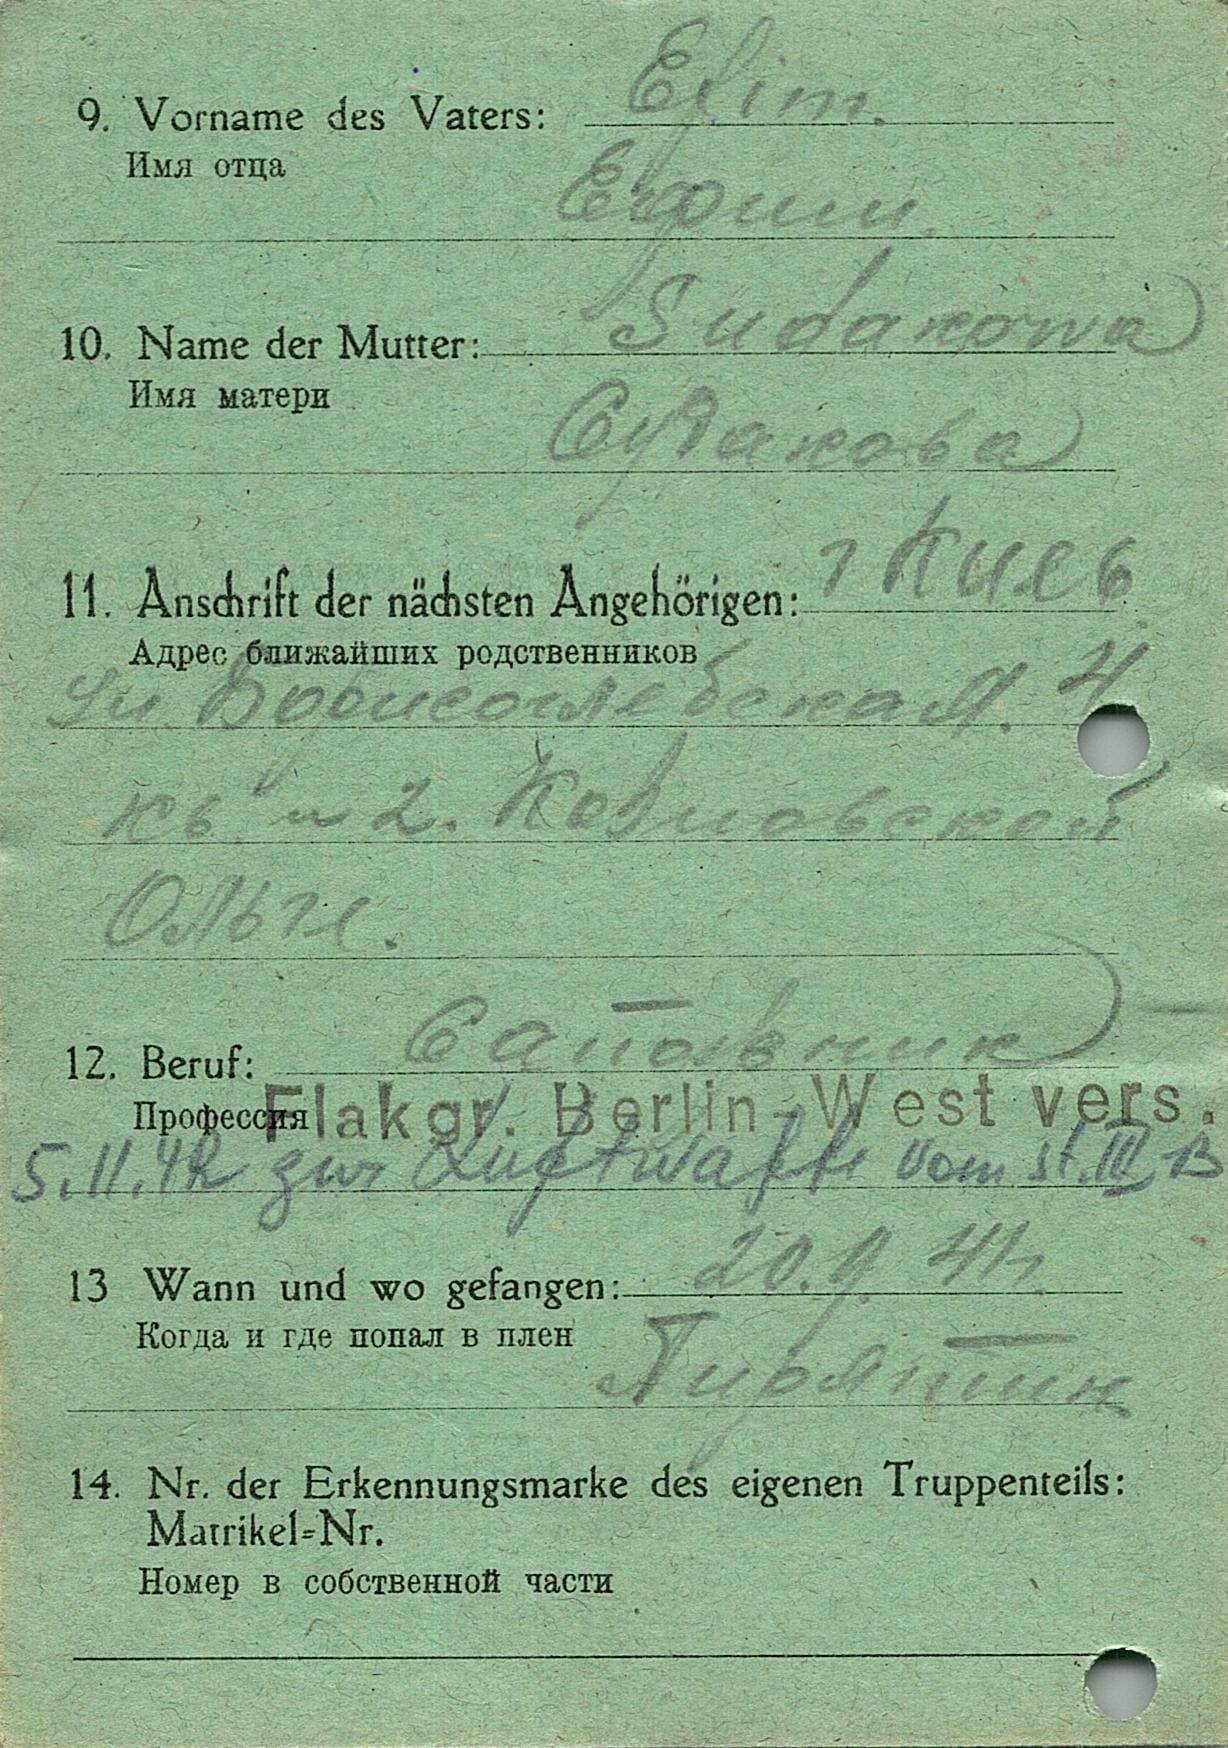 9. Vorname des Vaters: Efim.
Имя отца
Ефим.
10. Name der Mutter: Sudakowa
Имя матери
Судакова
11. Anschrift der nächsten Angehörigen: г Киев
Адрес ближайших родственников
ул. Борисоглебская. 4
кв. 2.
Ольге.
12. Beruf: Сапожник
Профессия
Flakgr. Berlin-West vers.
5.11.42 zur Luftwaffe vom St. III B
13 Wann und wo gefangen: 20.9.41
Когда и где попал в плен
Пирятин
14. Nr. der Erkennungsmarke des eigenen Truppenteils:
Matrikel=Nr.
Номер в собственной части